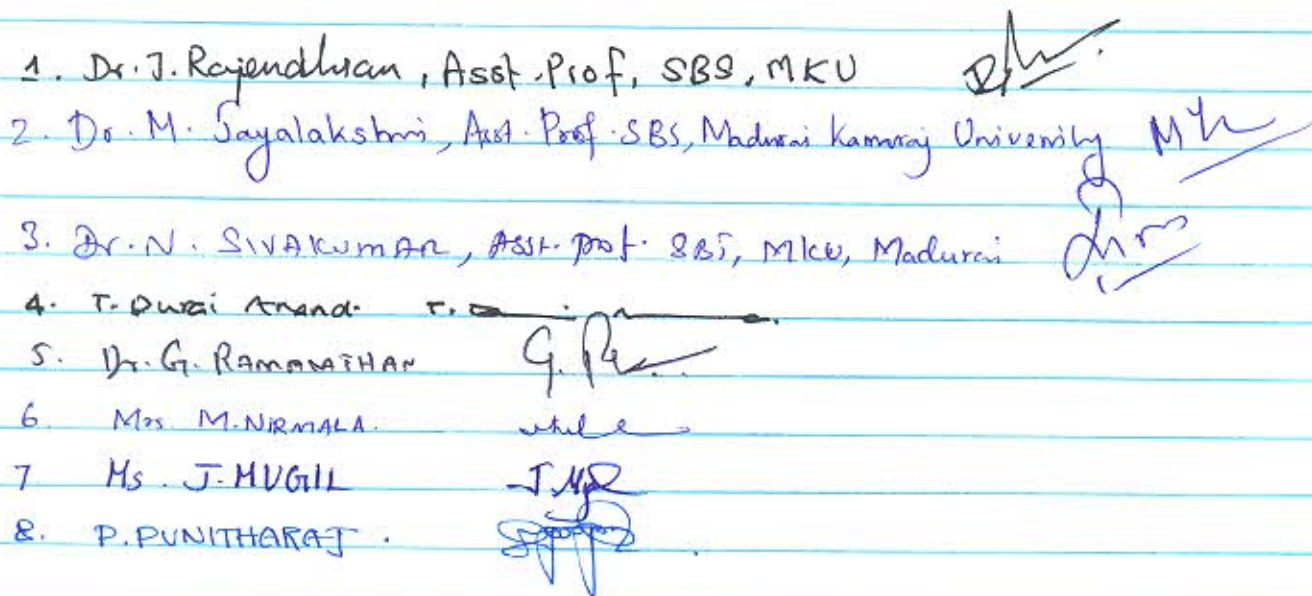 1. Dr. J. Rajendhran, Asst. Prof, SBS, MKU
2. Dr. M. Jayalakshmi, Asst. Prof. SBS, Madurai Kamaraj University
3. Dr. N. SIVAKUMAR, Asst. prof. SBS, MKU, Madurai
4. T. Durai Anand. T.
5. Dr. G. RAMANATHAN G.
6. Mrs M. NIRMALA.
7 Ms. J. MUGIL J.
8. P. PUNITHARAJ.